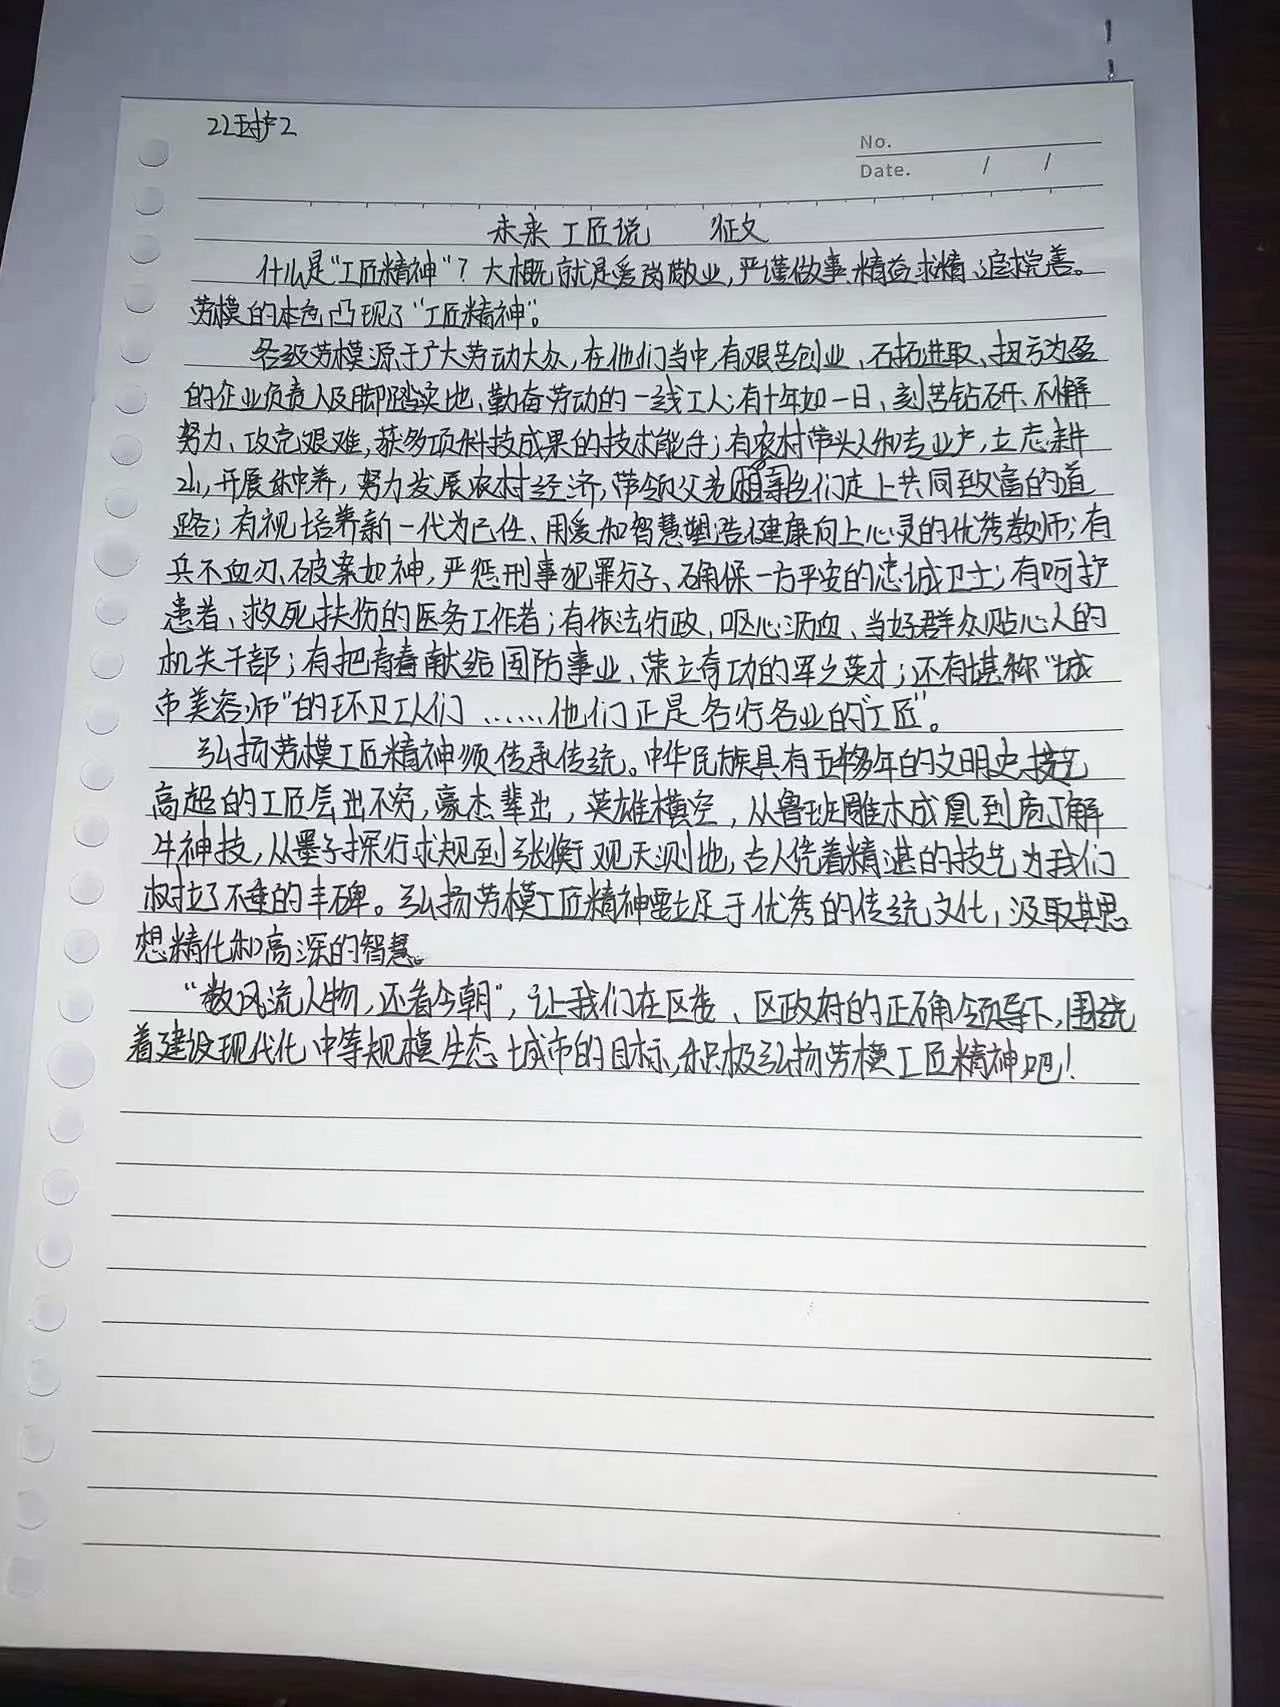 22护2
No.
Date. / /
未来工匠说 征文
什么是“工匠精神”?大概就是爱岗敬业,严谨做事、精益求精、追求完善。
劳模的本色凸现了“工匠精神”。
各级劳模源于广大劳动大众,在他们当中,有艰苦创业、石拓进取、扭亏为盈
的企业负责人及脚踏实地、勤奋劳动的一线工人;有十年如一日、刻苦钻研、不懈
努力、攻克艰难,获多项科技成果的技术能手;有农村带头人和专业户,立志耕
山,开展种养,努力发展农村经济,带领父老乡们走上共同致富的道
路;有视培养新一代为己任、用爱和智慧塑造健康向上心灵的优秀教师;有
兵不血刃、破案如神,严惩刑事犯罪分子、确保一方平安的忠诚卫士;有呵护
患者、救死扶伤的医务工作者;有依法行政、呕心沥血、当好群众贴心人的
机关干部;有把青春献给国防事业、荣立奇功的军之英才;还有堪称“城
市美容师”的环卫工人们……他们正是各行各业的“工匠”。
弘扬劳模工匠精神须传承传统。中华民族具有五千多年的文明史,技艺
高超的工匠层出不穷,豪杰辈出,英雄横空,从鲁班雕木成凰到庖丁解
牛神技,从墨子探行求规到张衡观天测地,古人凭着精湛的技艺为我们
树立了不垂的丰碑。弘扬劳模工匠精神要立足于优秀的传统文化,汲取其思
想精化和高深的智慧。
“数风流人物,还看今朝”,让我们在区委、区政府的正确领导下,围绕
着建设现代化中等规模生态城市的目标,积极弘扬劳模工匠精神吧!